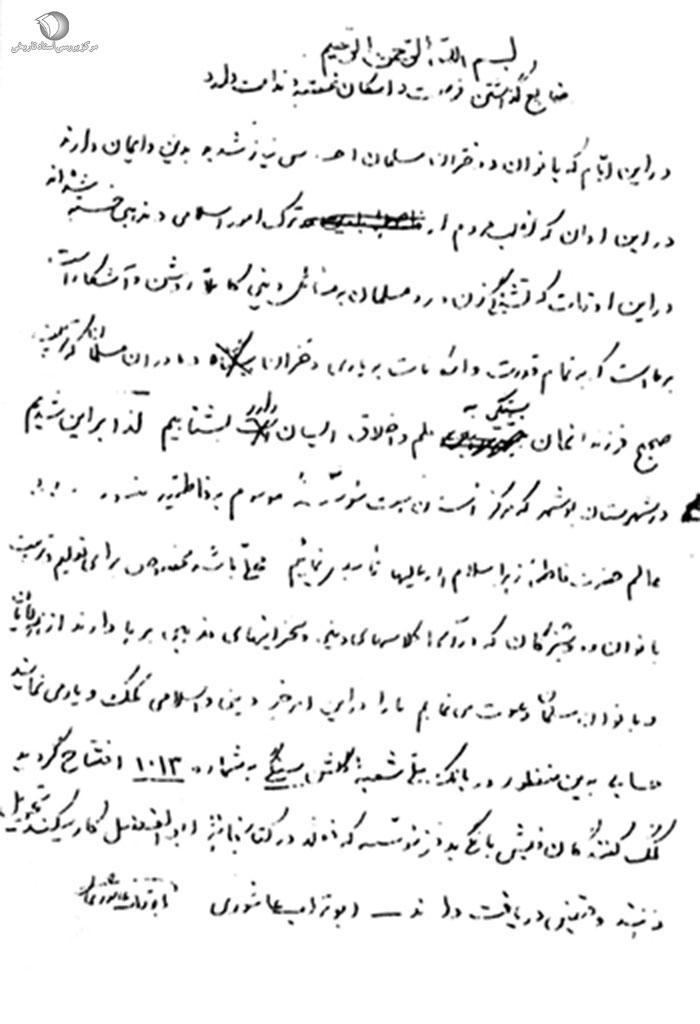 مرکز بررسی اسناد تاریخی
بسم الله الرحمن الرحیم
ضایع گذاشتن فرصت و امکان نتیجه ندامت دارد
در این ایام که بانوان و دختران مسلمان احساس نیاز شدید به دین و ایمان دارند
در این اوان که اغلب مردم از ترک امور اسلامی و مذهبی خسته شده‌اند
در این اوقات که تشنگی زن و مرد مسلمان به مسائل دینی کاملا روشن و آشکار است
بر ما است که به تمام قدرت و امکانات به یاری دختران و مادران مسلمان
صحیح فرزندانمان بستگی به علم و اخلاق ایشان دارد بشتابیم لذا بر این شدیم
در شهرستان بوشهر که مرکز استان است موسسه موسوم به فاطمیه
عالم حضرت فاطمه زهرا سلام الله علیها تأسیس نمائیم محلی باشد مخصوص برای تعلیم و تربیت
بانوان و دوشیزگان که در آن کلاسهای دینی و سخنرانیهای مذهبی برپا دارند از
و بانوان مسلمان دعوت می‌نمایم ما را در این امر خیر دینی و اسلامی کمک و یاری نمایند
حسابی بدین منظور در بانک ملی شعبه سنگی به شماره ۱۰۱۳ افتتاح گردید
کمک کنندگان فیش بانکی به فرزند که در کتابخانه ابوالفضل کار میکند تحویل
دهند و قبض دریافت دارند — ابوتراب عاشوری